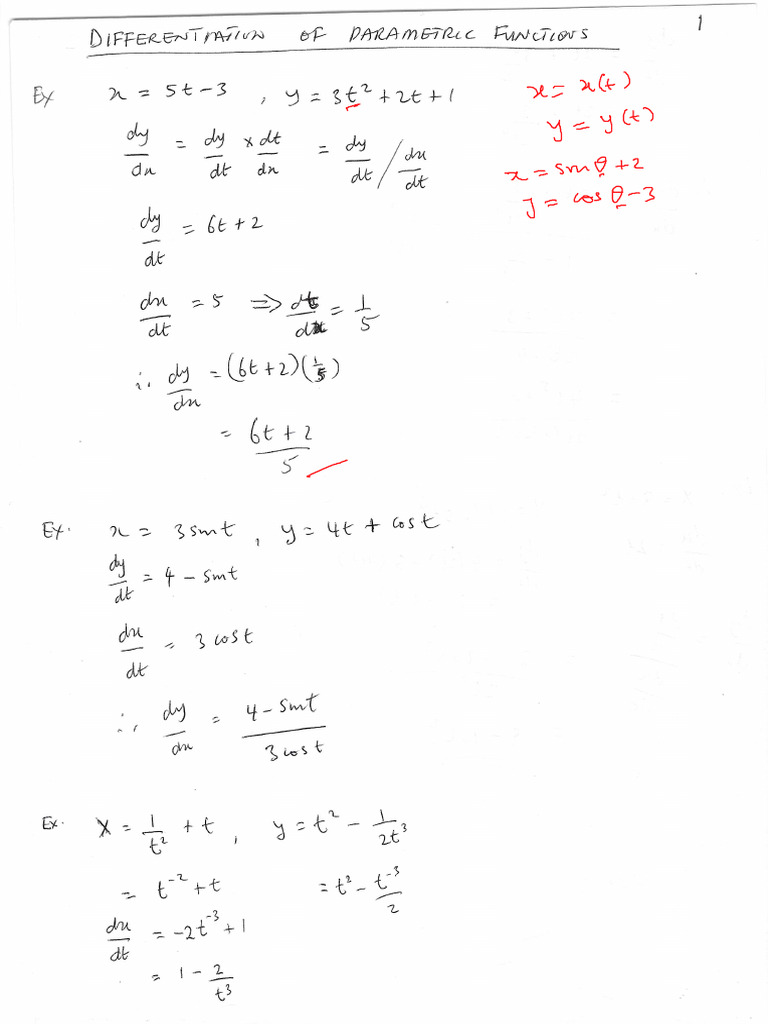 DIFFERENTIATION OF PARAMETRIC FUNCTIONS 1
Ex x = 5t - 3 , y = 3t² + 2t + 1
x = x(t)
y = y(t)
x = sin θ + 2
y = cos θ - 3
dy/dx = dy/dt × dt/dx = dy/dt / dx/dt
dy/dt = 6t + 2
dx/dt = 5 ⇒ dt/dx = 1/5
∴ dy/dx = (6t + 2)(1/5)
= (6t + 2)/5
Ex. x = 3 sin t , y = 4t + cos t
dy/dt = 4 - sin t
dx/dt = 3 cos t
∴ dy/dx = (4 - sin t)/(3 cos t)
Ex. x = 1/t² + t , y = t² - 1/2t³
= t⁻² + t = t² - t⁻³/2
dx/dt = -2t⁻³ + 1
= 1 - 2/t³